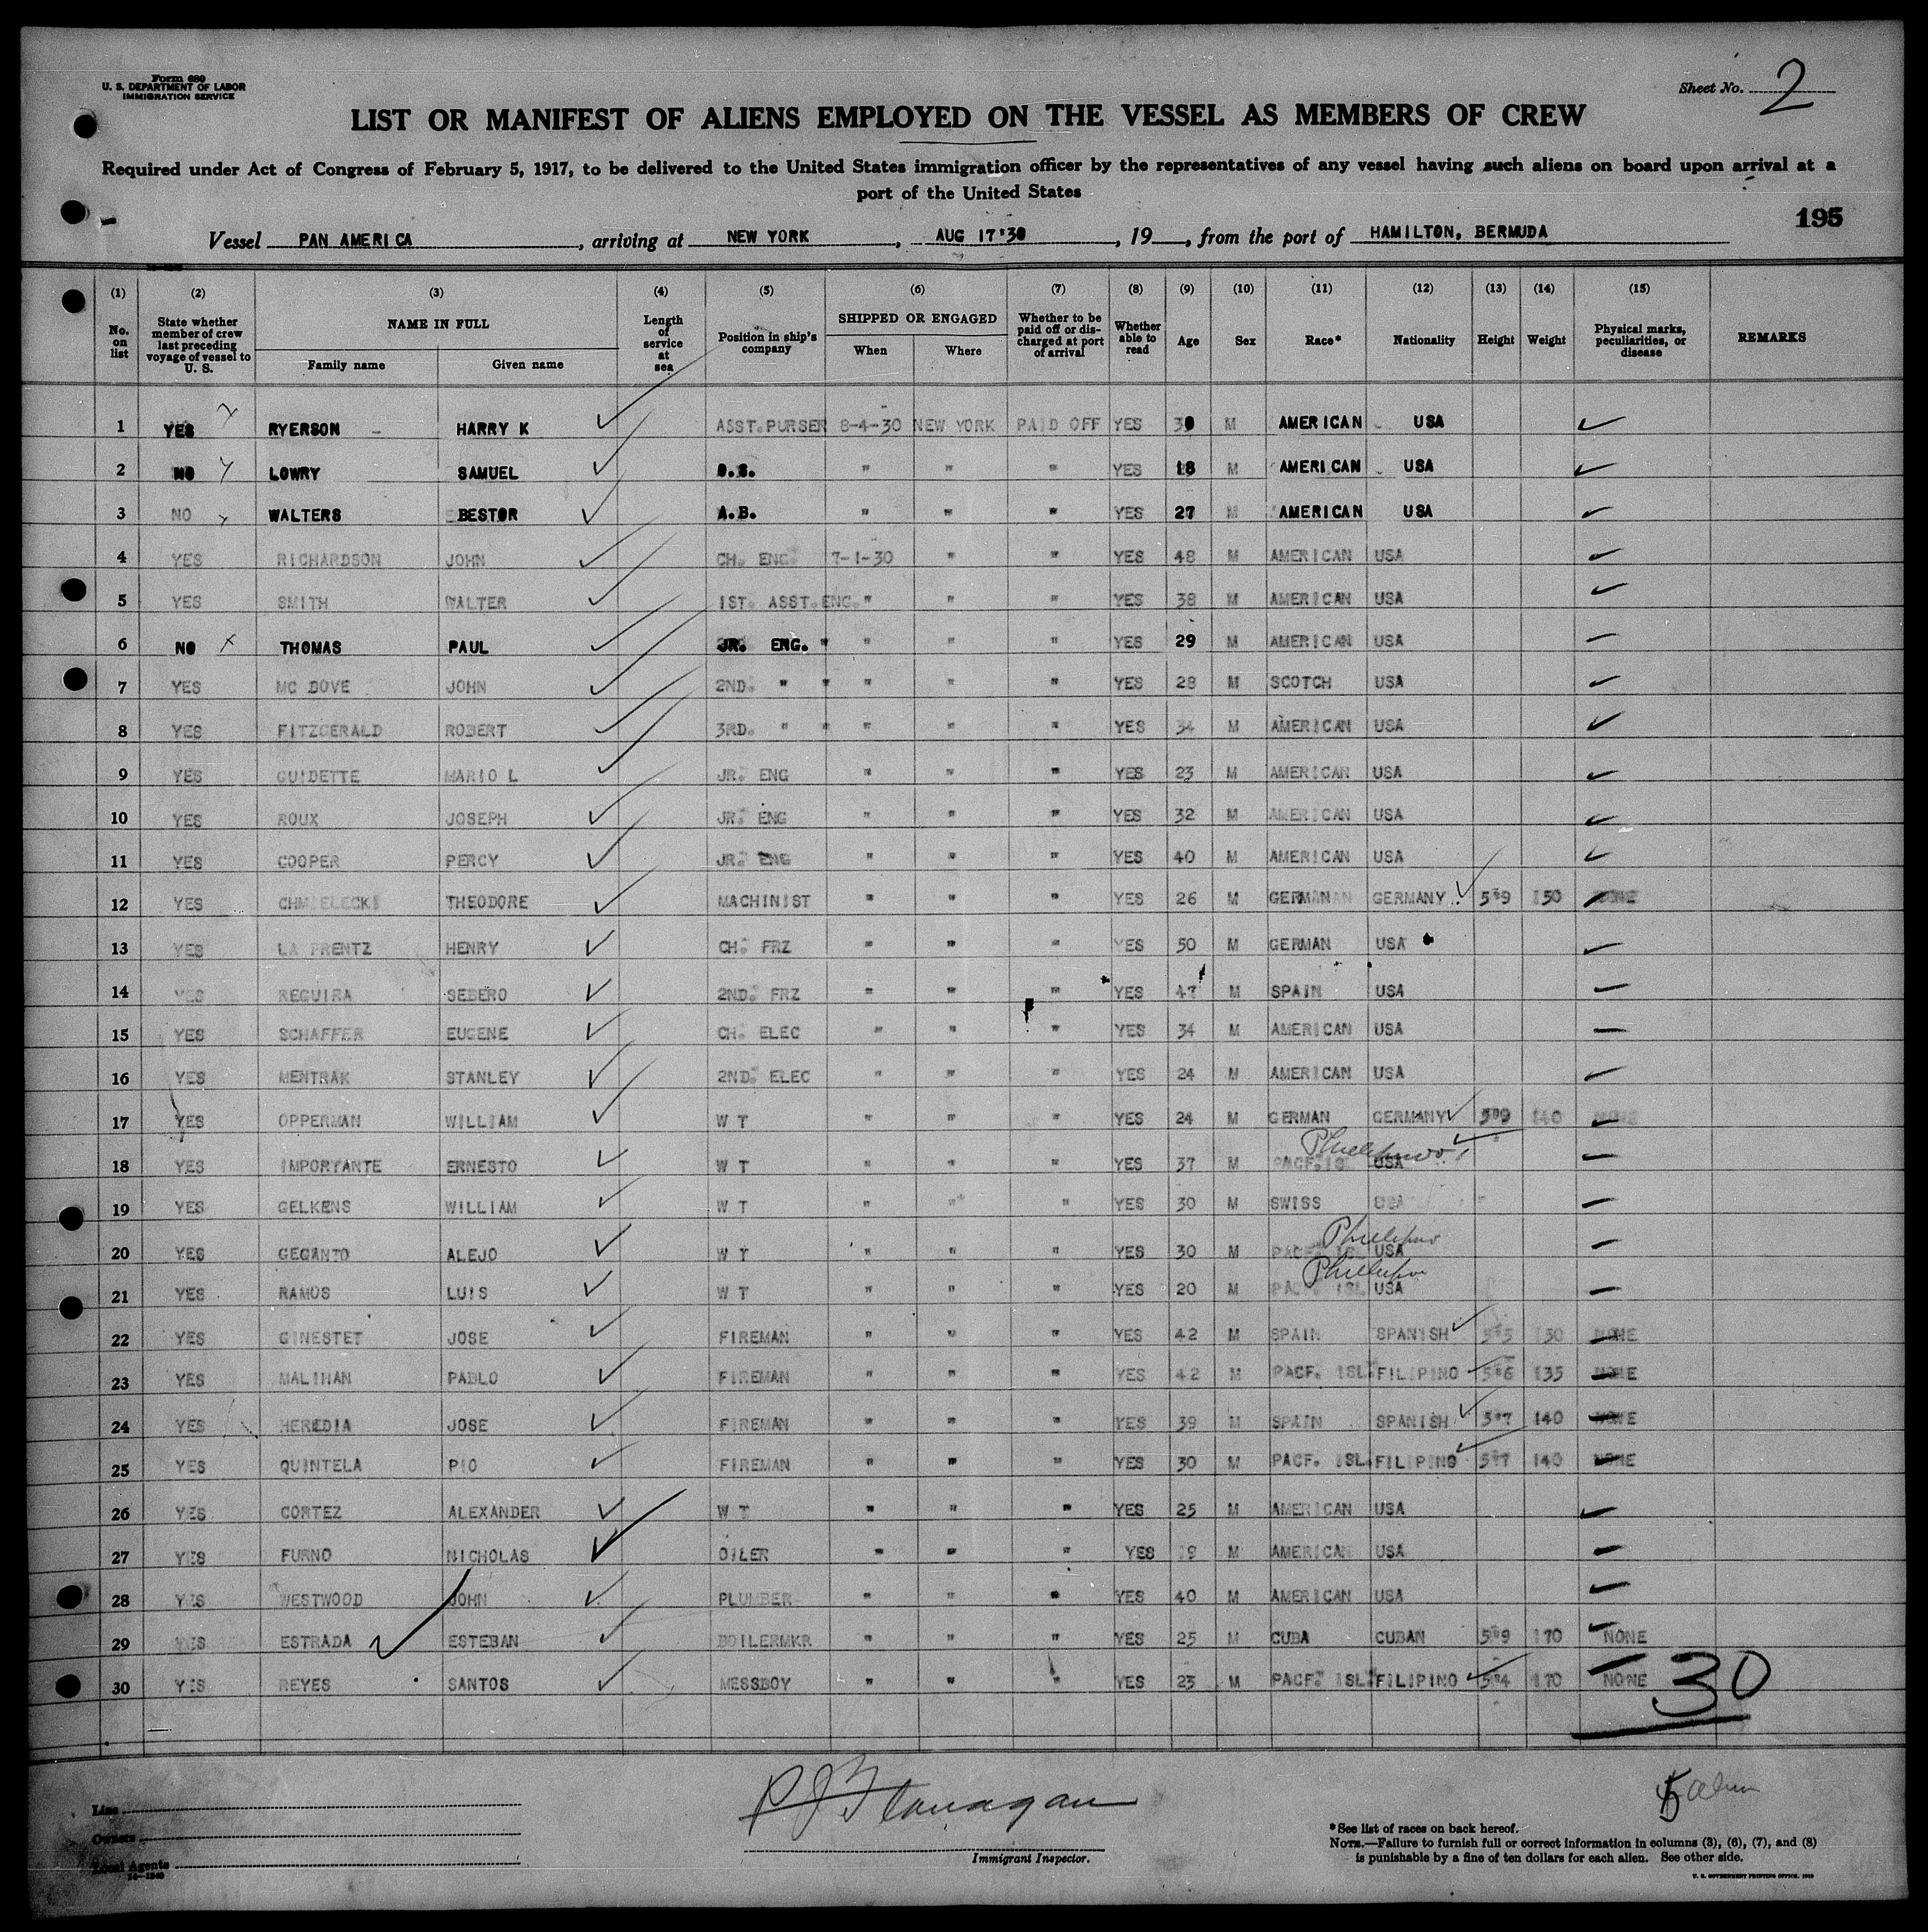 Form 680
U. S. DEPARTMENT OF LABOR
IMMIGRATION SERVICE
Sheet No. 2
LIST OR MANIFEST OF ALIENS EMPLOYED ON THE VESSEL AS MEMBERS OF CREW
Required under Act of Congress of February 5, 1917, to be delivered to the United States immigration officer by the representatives of any vessel having such aliens on board upon arrival at a
port of the United States
195
Vessel PAN AMERICA, arriving at NEW YORK, AUG 17'30, 19, from the port of HAMILTON, BERMUDA
(1) (2) (3) (4) (5) (6) (7) (8) (9) (10) (11) (12) (13) (14) (15)
No. on list State whether member of crew last preceding voyage of vessel to U. S. NAME IN FULL Family name Given name Length of service at sea Position in ship's company SHIPPED OR ENGAGED When Where Whether to be paid off or discharged at port of arrival Whether able to read Age Sex Race* Nationality Height Weight Physical marks, peculiarities, or disease REMARKS
1 YES RYERSON HARRY K ASST. PURSER 8-4-30 NEW YORK PAID OFF YES M AMERICAN USA
2 NO LOWRY SAMUEL O.S. " " " YES 18 M AMERICAN USA
3 NO WALTERS BESTOR A.B. " " " YES 27 M AMERICAN USA
4 YES RICHARDSON JOHN CH. ENG. 7-1-30 " " YES 48 M AMERICAN USA
5 YES SMITH WALTER 1ST. ASST. ENG. " " " YES 38 M AMERICAN USA
6 NO THOMAS PAUL JR. ENG. " " " " YES 29 M AMERICAN USA
7 YES MC DOVE JOHN 2ND. " " " " " YES 28 M SCOTCH USA
8 YES FITZGERALD ROBERT 3RD. " " " " " YES 34 M AMERICAN USA
9 YES GUIDETTE MARIO L JR. ENG " " " YES 23 M AMERICAN USA
10 YES ROUX JOSEPH JR. ENG " " " YES 32 M AMERICAN USA
11 YES COOPER PERCY JR. ENG " " " YES 40 M AMERICAN USA
12 YES CHMIELECKI THEODORE MACHINIST " " " YES 26 M GERMAN GERMANY 5"9 150 NONE
13 YES LA PRENTZ HENRY CH. FRZ " " " YES 50 M GERMAN USA
14 YES REGUIRA SEBERO 2ND. FRZ " " " YES 47 M SPAIN USA
15 YES SCHAFFER EUGENE CH. ELEC " " " YES 34 M AMERICAN USA
16 YES MENTRAK STANLEY 2ND. ELEC " " " YES 24 M AMERICAN USA
17 YES OPPERMAN WILLIAM W T " " " YES 24 M GERMAN GERMANY 5"9 140 NONE
18 YES IMPORTANTE ERNESTO W T " " " YES 37 M PACF. IS USA
19 YES GELKENS WILLIAM W T " " " YES 30 M SWISS USA
20 YES GEGANTO ALEJO W T " " " YES 30 M PACF. ISL Phillipino USA
21 YES RAMOS LUIS W T " " " YES 20 M PACF. ISL USA
22 YES GINESTET JOSE FIREMAN " " " YES 42 M SPAIN SPANISH 5"5 130 NONE
23 YES MALIHAN PABLO FIREMAN " " " YES 42 M PACF. ISL. FILIPINO 5"6 135 NONE
24 YES HEREDIA JOSE FIREMAN " " " YES 39 M SPAIN SPANISH 5"7 140 NONE
25 YES QUINTELA PIO FIREMAN " " " YES 30 M PACF. ISL. FILIPINO 5"7 140 NONE
26 YES CORTEZ ALEXANDER W T " " " YES 25 M AMERICAN USA
27 YES FURNO NICHOLAS OILER " " " YES 19 M AMERICAN USA
28 YES WESTWOOD JOHN PLUMBER " " " YES 40 M AMERICAN USA
29 YES ESTRADA ESTEBAN BOILERMKR " " " YES 25 M CUBA CUBAN 5"9 170 NONE
30 YES REYES SANTOS MESSBOY " " " YES 23 M PACF. ISL. FILIPINO 5"4 170 NONE
30
Line
Owners
Local Agents
14-1240
P J Flanagan
Immigrant Inspector.
*See list of races on back hereof.
NOTE.—Failure to furnish full or correct information in columns (3), (6), (7), and (8)
is punishable by a fine of ten dollars for each alien. See other side.